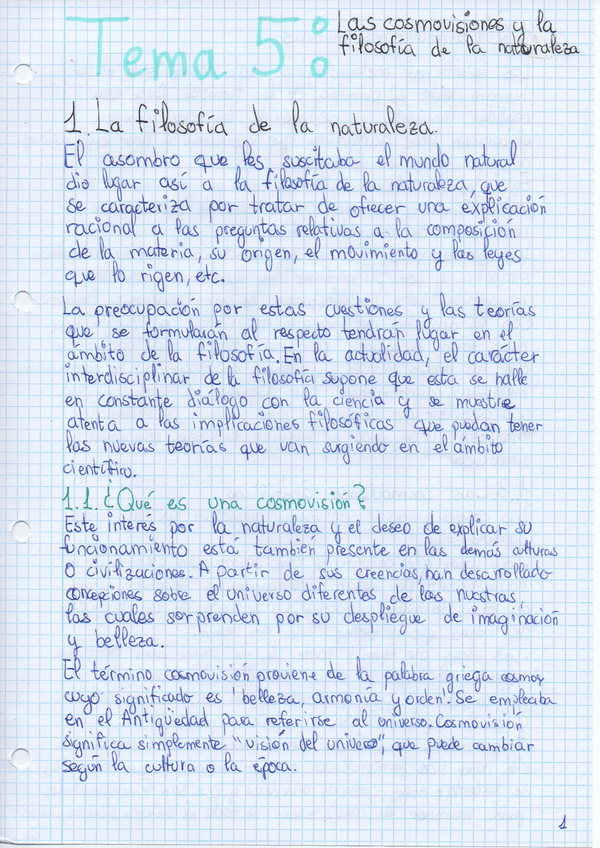 Tema 5:
Las cosmovisiones y la
filosofía de la naturaleza
1. La filosofía de la naturaleza.
El asombro que les suscitaba el mundo natural
dio lugar así a la filosofía de la naturaleza, que
se caracteriza por tratar de ofrecer una explicación
racional a las preguntas relativas a la composición
de la materia, su origen, el movimiento y las leyes
que lo rigen, etc.
La preocupación por estas cuestiones y las teorías
que se formularán al respecto tendrán lugar en el
ámbito de la filosofía. En la actualidad, el carácter
interdisciplinar de la filosofía supone que esta se halle
en constante diálogo con la ciencia y se muestre
atenta a las implicaciones filosóficas que puedan tener
las nuevas teorías que van surgiendo en el ámbito
científico.
1.1. ¿Qué es una cosmovisión?
Este interés por la naturaleza y el deseo de explicar su
funcionamiento está también presente en las demás culturas
o civilizaciones. A partir de sus creencias, han desarrollado
concepciones sobre el universo diferentes de las nuestras,
las cuales sorprenden por su despliegue de imaginación
y belleza.
El término cosmovisión proviene de la palabra griega cosmos
cuyo significado es 'belleza, armonía y orden'. Se empleaba
en el Antigüedad para referirse al universo. Cosmovisión
significa simplemente "visión del universo", que puede cambiar
según la cultura o la época.
1